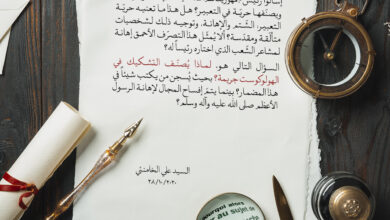 ويصنّفها حريّة في التعبير؟ هل ما تعنيه حريّة
التعبير الشتم والإهانة، وتوجيه ذلك لشخصيات
متألّقة ومقدّسة؟ ألا يُمثّل هذا التصرّف الأحمق إهانة
لمشاعر الشّعب الذي اختاره رئيساً له؟
السؤال التالي هو، لماذا يُصنّف التشكيك في
الهولوكوست جريمة؟ بحيث يُسجن من يكتب شيئاً في
هذا المضمار؟ بينما يتمّ إفساح المجال لإهانة الرسول
الأعظم صلى الله عليه وآله وسلم؟
السيد علي الخامنئي
٢٨/١٠/٢٠٢٠